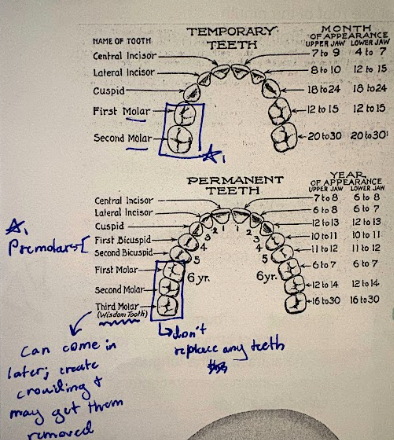 TEMPORARY TEETH
MONTH OF APPEARANCE
NAME OF TOOTH UPPER JAW LOWER JAW
Central Incisor 7 to 9 4 to 7
Lateral Incisor 8 to 10 12 to 15
Cuspid 18 to 24 18 to 24
First Molar 12 to 15 12 to 15
Second Molar 20 to 30 20 to 30
A1
PERMANENT TEETH
YEAR OF APPEARANCE
UPPER JAW LOWER JAW
Central Incisor 7 to 8 6 to 8
Lateral Incisor 6 to 8 6 to 7
Cuspid 12 to 13 12 to 13
First Bicuspid 10 to 11 10 to 11
Second Bicuspid 11 to 12 11 to 12
First Molar 6 yr. 6 yr. 6 to 7 6 to 7
Second Molar 12 to 14 12 to 14
Third Molar 16 to 30 16 to 30
(Wisdom Tooth)
5 4 3 2 1 1 2 3 4 5
A1
Premolars
don't
replace any teeth
Can come in
later; create
crowding +
may get them
removed